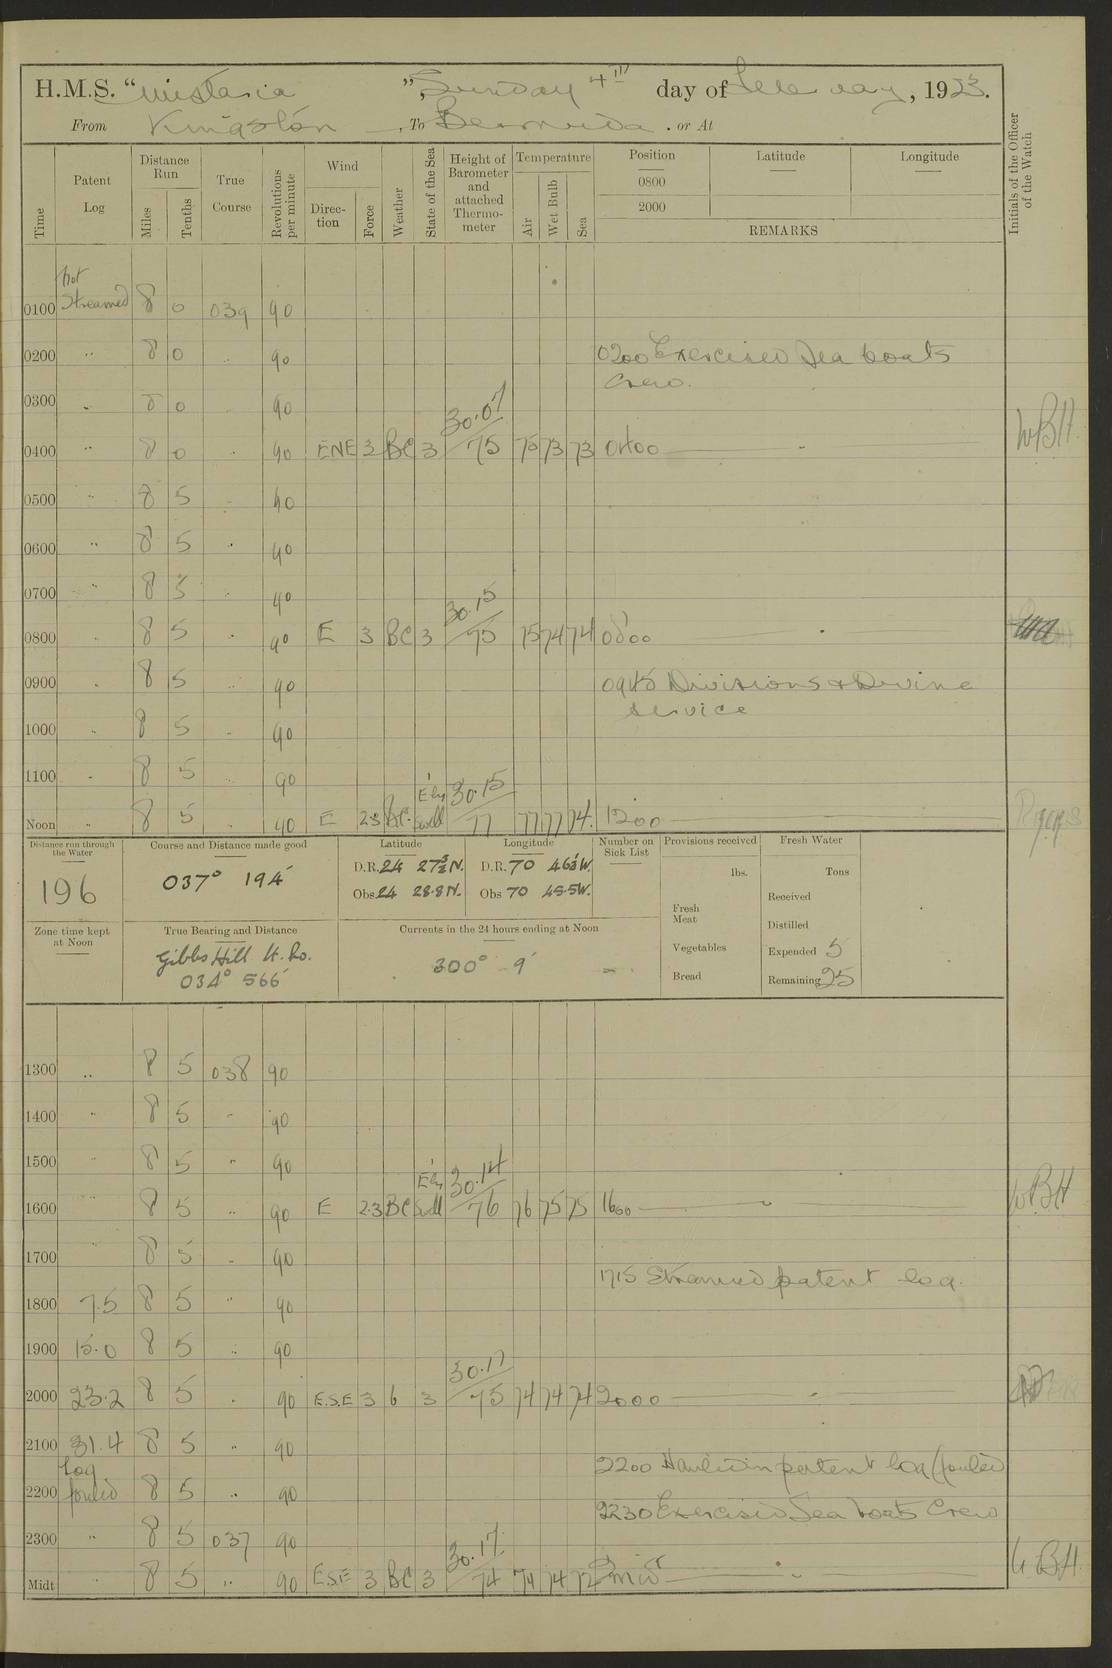 H.M.S. “Wistaria”, Sunday 4TH day of February, 1923.
From Kingston, To Bermuda. or At
Time Patent Log Distance Run Miles Tenths True Course Revolutions per minute Wind Direction Force Weather State of the Sea Height of Barometer and attached Thermometer Temperature Air Wet Bulb Sea Position Latitude Longitude Initials of the Officer of the Watch
0800
2000
REMARKS
not
0100 Streamed 8 0 039 90
0200 " 8 0 " 90 0200 Exercised Sea boats
crew.
0300 " 8 0 " 90 30.07
0400 " 8 0 " 90 ENE 3 BC 3 75 75 73 73 0400 WBH
0500 " 8 5 " 90
0600 " 8 5 " 90
0700 " 8 5 " 90 30.15
0800 " 8 5 " 90 E 3 BC 3 75 75 74 74 0800
0900 " 8 5 " 90 0945 Divisions & Divine
service
1000 " 8 5 " 90
1100 " 8 5 " 90 E'ly 30.15
Noon " 8 5 " 90 E 2.3 BC. Swell 77 77 77 74. 1200
Distance run through the Water
196
Course and Distance made good
037° 194'
Latitude
D.R. 24 27½ N.
Obs 24 28.8 N.
Longitude
D.R. 70 46½ W.
Obs 70 45.5 W.
Number on Sick List
Provisions received
lbs.
Fresh Meat
Vegetables
Bread
Fresh Water
Tons
Received
Distilled
Expended 5
Remaining 25
Zone time kept at Noon
True Bearing and Distance
Gibbs Hill Lt. Ho.
034° 566'
Currents in the 24 hours ending at Noon
300° 9'
1300 " 8 5 038 90
1400 " 8 5 " 90
1500 " 8 5 " 90 E'ly 30.14
1600 " 8 5 " 90 E 2.3 BC Swell 76 76 75 75 1600 WBH
1700 " 8 5 " 90
1715 Streamed patent log.
1800 7.5 8 5 " 90
1900 15.0 8 5 " 90 30.17
2000 23.2 8 5 " 90 E.S.E 3 b 3 75 74 74 74 2000
2100 31.4 8 5 " 90
Log 2200 Hauled in patent log (fouled)
2200 fouled 8 5 " 90
2230 Exercised Sea boats Crew
2300 " 8 5 037 90 30.17
Midt " 8 5 " 90 E.S.E 3 BC 3 74 74 74 72 WBH